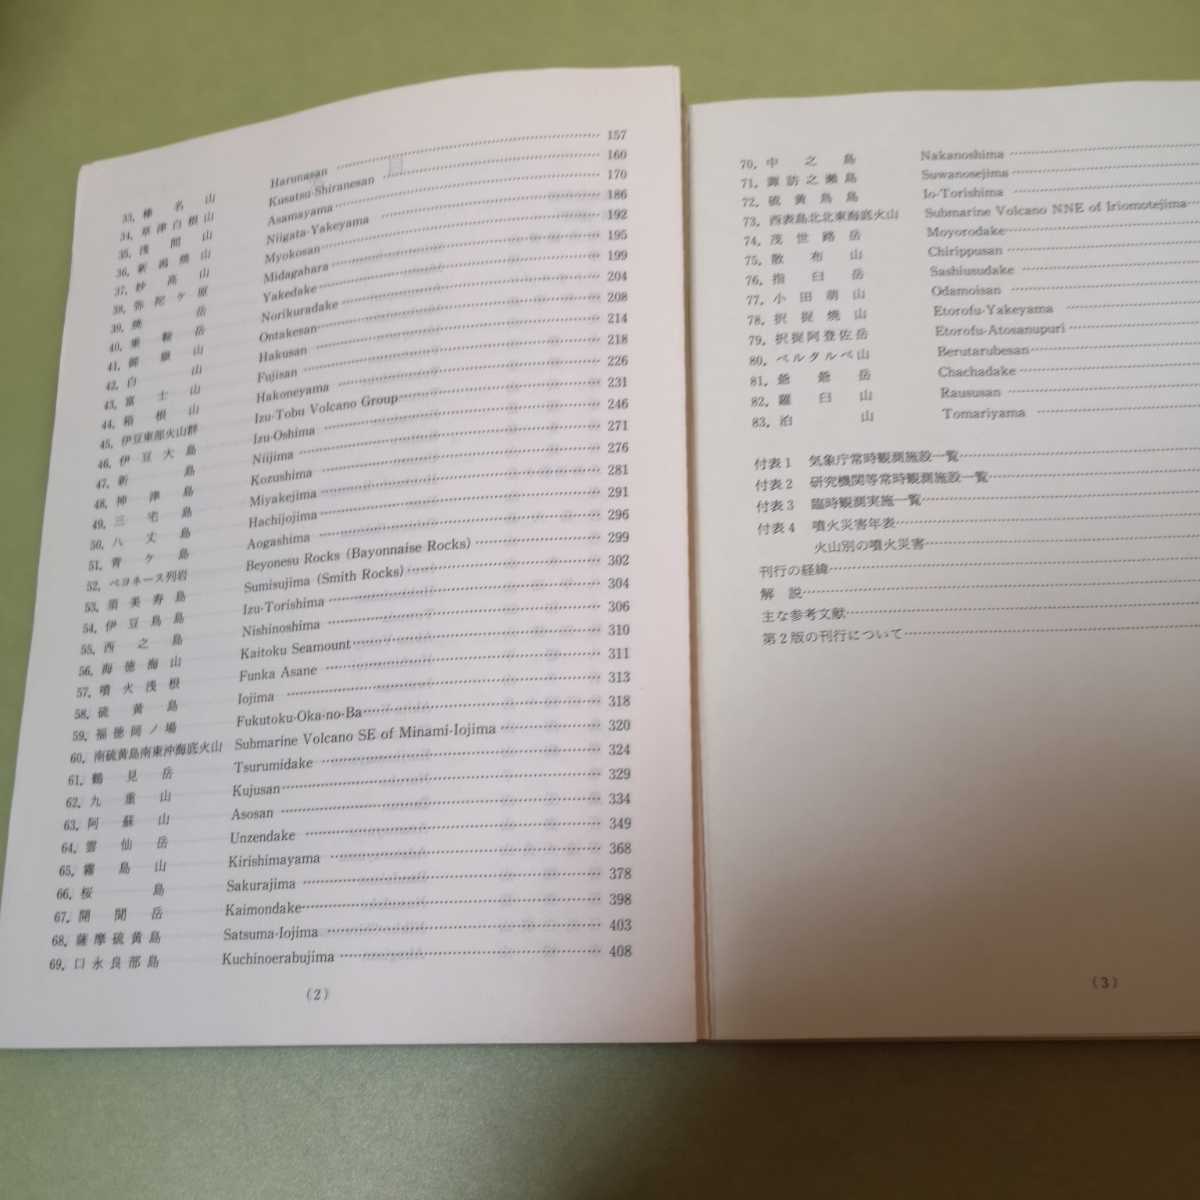 33. 榛名山 Harunasan 157
34. 草津白根山 Kusatsu-Shiranesan 160
35. 浅間山 Asamayama 170
36. 新潟焼山 Niigata-Yakeyama 186
37. 妙高山 Myokosan 192
38. 弥陀ケ原 Midagahara 195
39. 焼岳 Yakedake 199
40. 乗鞍岳 Norikuradake 204
41. 御嶽山 Ontakesan 208
42. 白山 Hakusan 214
43. 富士山 Fujisan 218
44. 箱根山 Hakoneyama 226
45. 伊豆東部火山群 Izu-Tobu Volcano Group 231
46. 伊豆大島 Izu-Oshima 246
47. 新島 Niijima 271
48. 神津島 Kozushima 276
49. 三宅島 Miyakejima 281
50. 八丈島 Hachijojima 291
51. 青ケ島 Aogashima 296
52. ベヨネース列岩 Beyonesu Rocks (Bayonnaise Rocks) 299
53. 須美寿島 Sumisujima (Smith Rocks) 302
54. 伊豆鳥島 Izu-Torishima 304
55. 西之島 Nishinoshima 306
56. 海徳海山 Kaitoku Seamount 310
57. 噴火浅根 Funka Asane 311
58. 硫黄島 Iojima 313
59. 福徳岡ノ場 Fukutoku-Oka-no-Ba 318
60. 南硫黄島南東沖海底火山 Submarine Volcano SE of Minami-Iojima 320
61. 鶴見岳 Tsurumidake 324
62. 九重山 Kujusan 329
63. 阿蘇山 Asosan 334
64. 雲仙岳 Unzendake 349
65. 霧島山 Kirishimayama 368
66. 桜島 Sakurajima 378
67. 開聞岳 Kaimondake 398
68. 薩摩硫黄島 Satsuma-Iojima 403
69. 口永良部島 Kuchinoerabujima 408
(2)
70. 中之島 Nakanoshima
71. 諏訪之瀬島 Suwanosejima
72. 硫黄鳥島 Io-Torishima
73. 西表島北北東海底火山 Submarine Volcano NNE of Iriomotejima
74. 茂世路岳 Moyorodake
75. 散布山 Chirippusan
76. 指臼岳 Sashiusudake
77. 小田萌山 Odamoisan
78. 択捉焼山 Etorofu-Yakeyama
79. 択捉阿登佐岳 Etorofu-Atosanupuri
80. ベルタルベ山 Berutarubesan
81. 爺爺岳 Chachadake
82. 羅臼山 Raususan
83. 泊山 Tomariyama
付表1 気象庁常時観測施設一覧
付表2 研究機関等常時観測施設一覧
付表3 臨時観測実施一覧
付表4 噴火災害年表
火山別の噴火災害
刊行の経緯
解説
主な参考文献
第2版の刊行について
(3)